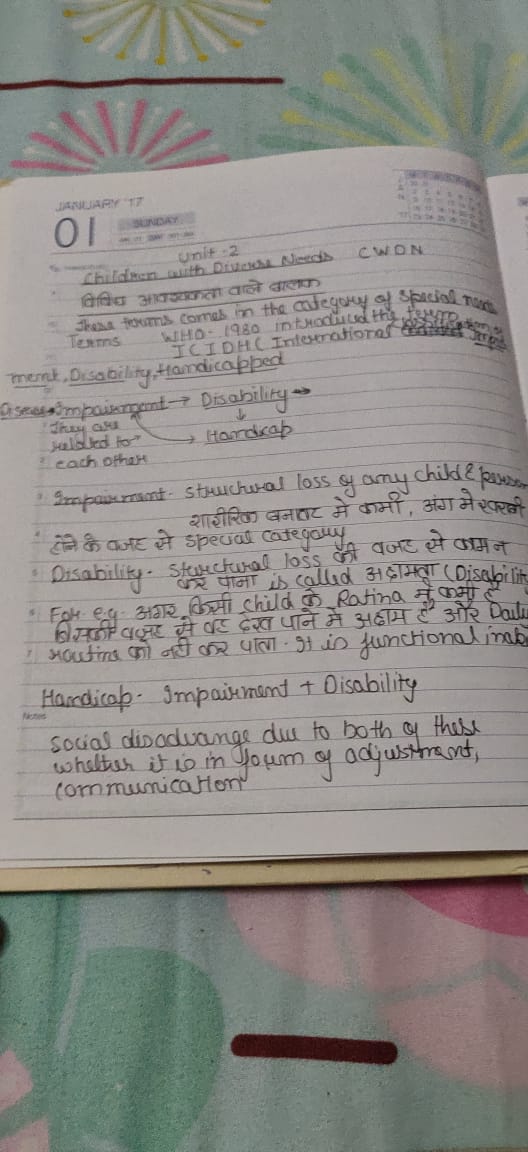 JANUARY '17
01 SUNDAY
Unit-2
Children with Diverse Needs CWDN
विविध आवश्यकता वाले बालक
These terms comes in the category of special needs
Terms WHO-1980 introduced the term
ICIDH (International
ment, Disability, Handicapped
Disease → Impairment → Disability →
They are ↓
related to → Handicap
each other
Impairment - structural loss of any child & person
शारीरिक बनावट में कमी, अंग में खराबी
होने के वजह से special category
Disability - structural loss की वजह से काम न
कर पाना is called अक्षमता (Disability
For e.g. अगर किसी child के Ratina में कमी है
जिसकी वजह से वह देख पाने में अक्षम है और Daily
routine को नहीं कर पाता. It is functional
Handicap - Impairment + Disability
Notes
social disadvange due to both of these
whether it is in form of adjustment,
communication